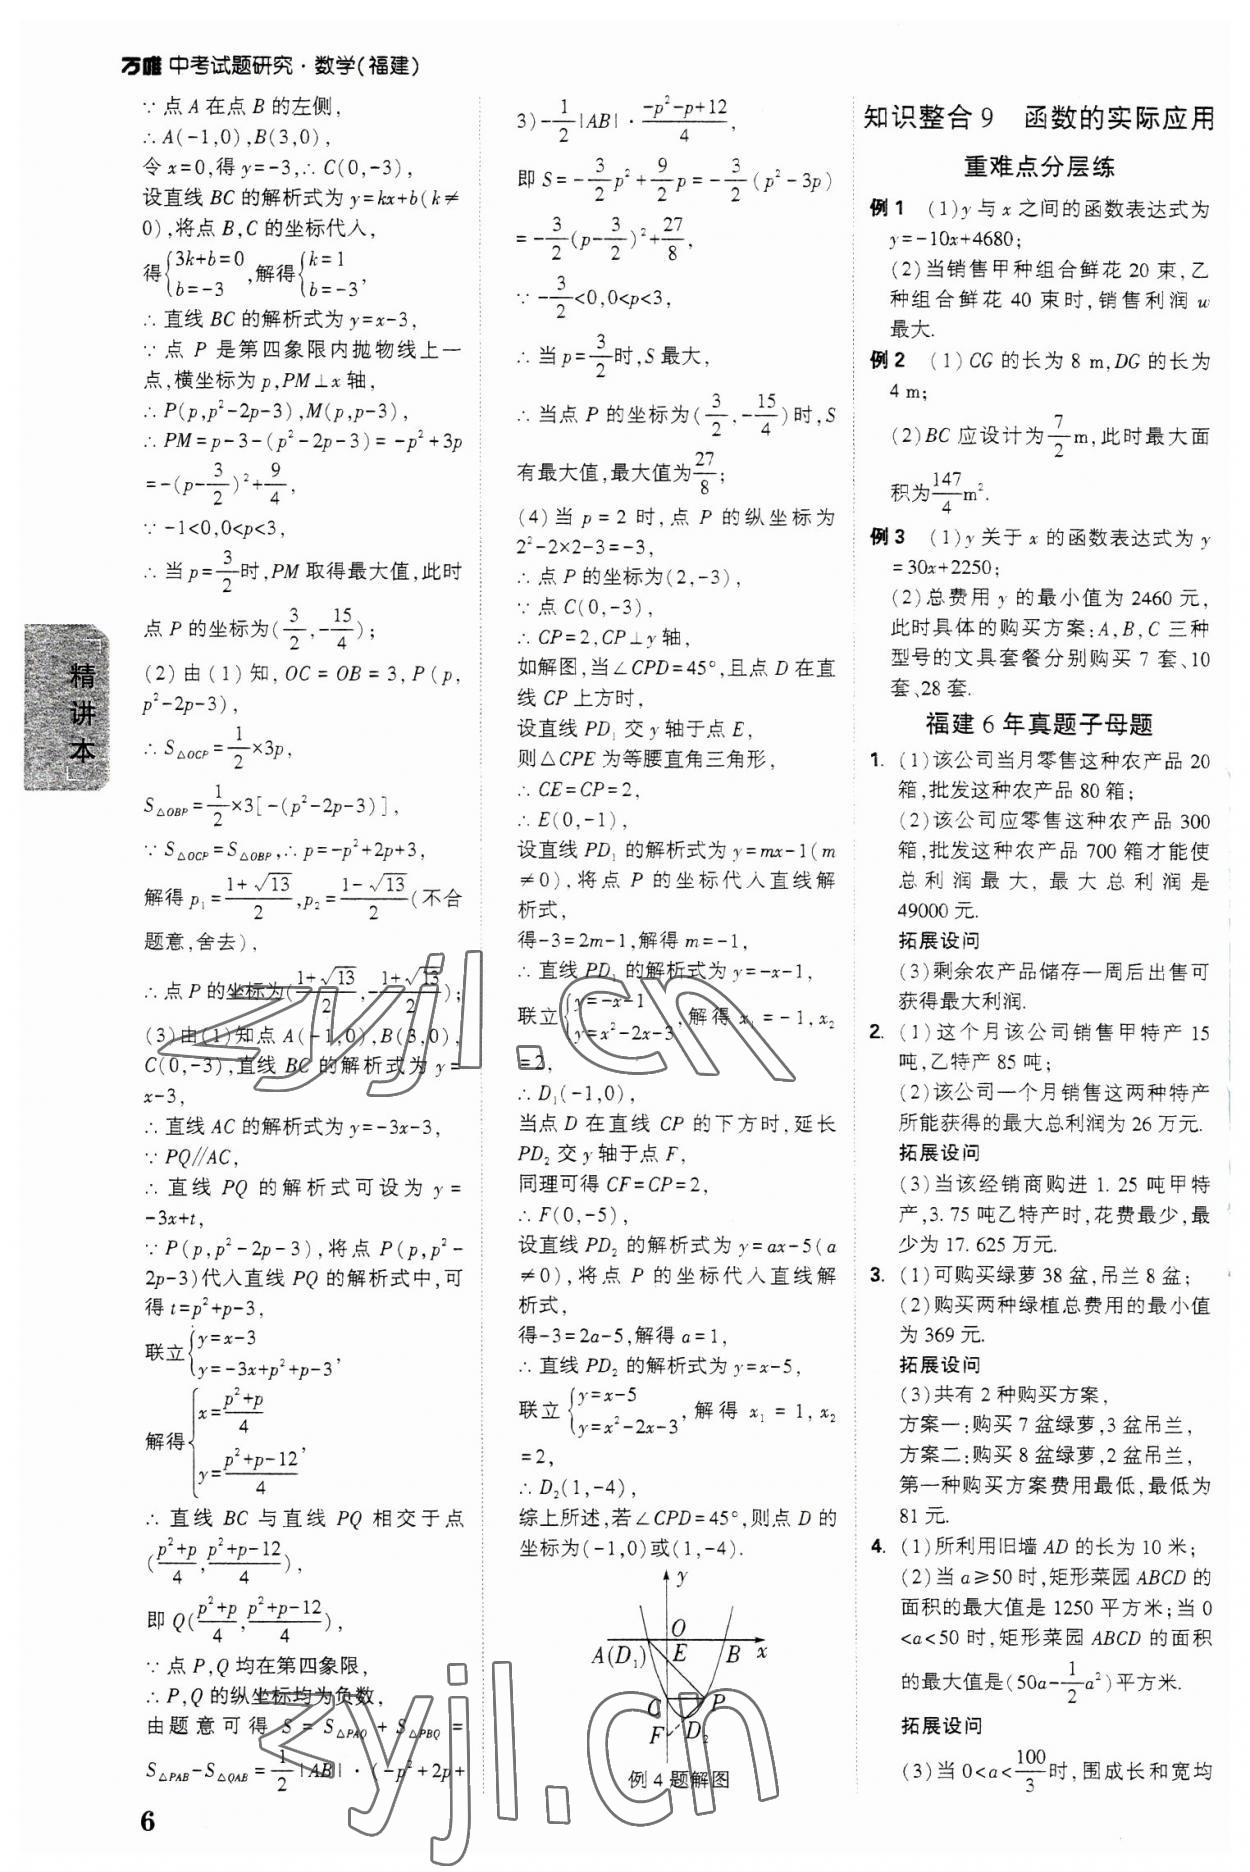 万唯 中考试题研究·数学(福建)
∵点A在点B的左侧,
∴A(-1,0),B(3,0),
令x=0,得y=-3,∴C(0,-3),
设直线BC的解析式为y=kx+b(k≠
0),将点B,C的坐标代入,
得{3k+b=0 b=-3,解得{k=1 b=-3,
∴直线BC的解析式为y=x-3,
∵点P是第四象限内抛物线上一
点,横坐标为p,PM⊥x轴,
∴P(p,p²-2p-3),M(p,p-3),
∴PM=p-3-(p²-2p-3)=-p²+3p
=-(p-3/2)²+9/4,
∵-1<0,0<p<3,
∴当p=3/2时,PM取得最大值,此时
点P的坐标为(3/2,-15/4);
(2)由(1)知,OC=OB=3,P(p,
p²-2p-3),
∴S△OCP=1/2×3p,
S△OBP=1/2×3[-(p²-2p-3)],
∵S△OCP=S△OBP,∴p=-p²+2p+3,
解得p₁=(1+√13)/2,p₂=(1-√13)/2(不合
题意,舍去),
∴点P的坐标为((1+√13)/2,-(1+√13)/2);
(3)由(1)知点A(-1,0),B(3,0),
C(0,-3),直线BC的解析式为y=
x-3,
∴直线AC的解析式为y=-3x-3,
∵PQ∥AC,
∴直线PQ的解析式可设为y=
-3x+t,
∵P(p,p²-2p-3),将点P(p,p²-
2p-3)代入直线PQ的解析式中,可
得t=p²+p-3,
联立{y=x-3 y=-3x+p²+p-3,
解得{x=(p²+p)/4 y=(p²+p-12)/4,
∴直线BC与直线PQ相交于点
((p²+p)/4,(p²+p-12)/4),
即Q((p²+p)/4,(p²+p-12)/4),
∵点P,Q均在第四象限,
∴P,Q的纵坐标均为负数,
由题意可得S=S△PAQ+S△PBQ=
S△PAB-S△QAB=1/2|AB|·(-p²+2p+
3)-1/2|AB|·(-p²-p+12)/4,
即S=-3/2p²+9/2p=-3/2(p²-3p)
=-3/2(p-3/2)²+27/8,
∵-3/2<0,0<p<3,
∴当p=3/2时,S最大,
∴当点P的坐标为(3/2,-15/4)时,S
有最大值,最大值为27/8;
(4)当p=2时,点P的纵坐标为
2²-2×2-3=-3,
∴点P的坐标为(2,-3),
∵点C(0,-3),
∴CP=2,CP⊥y轴,
如解图,当∠CPD=45°,且点D在直
线CP上方时,
设直线PD₁交y轴于点E,
则△CPE为等腰直角三角形,
∴CE=CP=2,
∴E(0,-1),
设直线PD₁的解析式为y=mx-1(m
≠0),将点P的坐标代入直线解
析式,
得-3=2m-1,解得m=-1,
∴直线PD₁的解析式为y=-x-1,
联立{y=-x-1 y=x²-2x-3,解得x₁=-1,x₂
=2,
∴D₁(-1,0),
当点D在直线CP的下方时,延长
PD₂交y轴于点F,
同理可得CF=CP=2,
∴F(0,-5),
设直线PD₂的解析式为y=ax-5(a
≠0),将点P的坐标代入直线解
析式,
得-3=2a-5,解得a=1,
∴直线PD₂的解析式为y=x-5,
联立{y=x-5 y=x²-2x-3,解得x₁=1,x₂
=2,
∴D₂(1,-4),
综上所述,若∠CPD=45°,则点D的
坐标为(-1,0)或(1,-4).
y
O
A(D₁) E B x
C P
F D₂
例4题解图
知识整合9 函数的实际应用
重难点分层练
例1 (1)y与x之间的函数表达式为
y=-10x+4680;
(2)当销售甲种组合鲜花20束,乙
种组合鲜花40束时,销售利润w
最大.
例2 (1)CG的长为8 m,DG的长为
4 m;
(2)BC应设计为7/2m,此时最大面
积为147/4m².
例3 (1)y关于x的函数表达式为y
=30x+2250;
(2)总费用y的最小值为2460元,
此时具体的购买方案:A,B,C三种
型号的文具套餐分别购买7套、10
套、28套.
福建6年真题子母题
1. (1)该公司当月零售这种农产品20
箱,批发这种农产品80箱;
(2)该公司应零售这种农产品300
箱,批发这种农产品700箱才能使
总利润最大,最大总利润是
49000元.
拓展设问
(3)剩余农产品储存一周后出售可
获得最大利润.
2. (1)这个月该公司销售甲特产15
吨,乙特产85吨;
(2)该公司一个月销售这两种特产
所能获得的最大总利润为26万元.
拓展设问
(3)当该经销商购进1.25吨甲特
产,3.75吨乙特产时,花费最少,最
少为17.625万元.
3. (1)可购买绿萝38盆,吊兰8盆;
(2)购买两种绿植总费用的最小值
为369元.
拓展设问
(3)共有2种购买方案,
方案一:购买7盆绿萝,3盆吊兰,
方案二:购买8盆绿萝,2盆吊兰,
第一种购买方案费用最低,最低为
81元.
4. (1)所利用旧墙AD的长为10米;
(2)当a≥50时,矩形菜园ABCD的
面积的最大值是1250平方米;当0
<a<50时,矩形菜园ABCD的面积
的最大值是(50a-1/2a²)平方米.
拓展设问
(3)当0<a<100/3时,围成长和宽均
精讲本
6
zyjl.cn
zyjl.cn